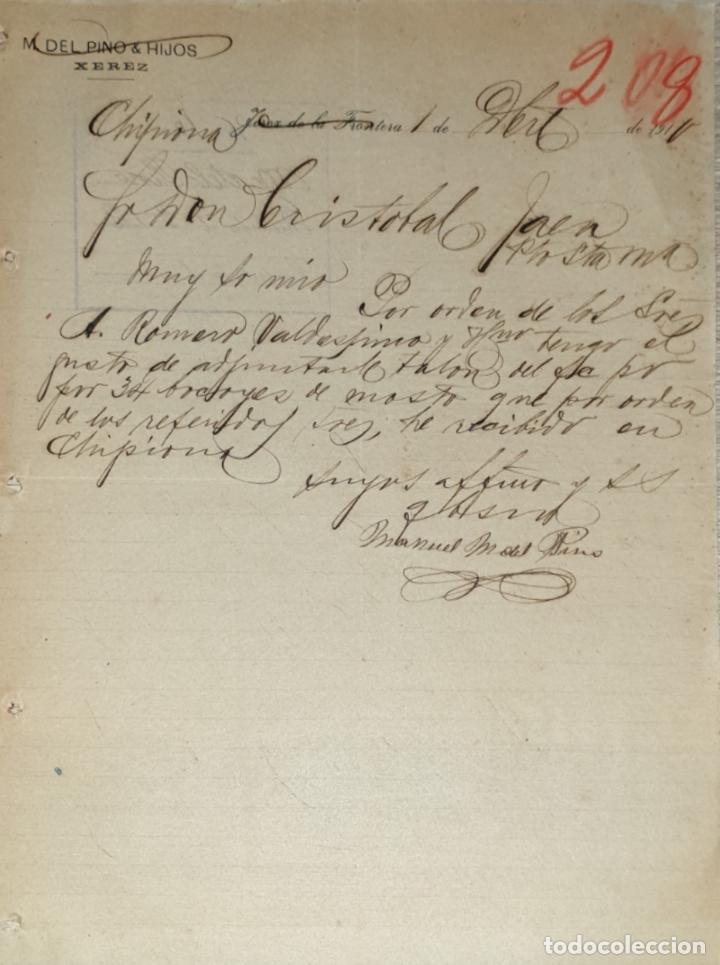 M. DEL PINO & HIJOS
XEREZ
208
Chipiona Jerez de la Frontera 1 de Dbre de 191
Sr Don Cristobal Jaen
Pto Sta Ma
Muy Sr mio
Por orden de los Sres
A. Romero Valdespino y Hno tengo el
gusto de adjuntarle talon del fc
por 34 bocoyes de mosto que por orden
de los referidos Sres, he recibido en
Chipiona
suyos affmo y SS
q b s m
Manuel M del Pino
todocoleccion
todocoleccion.net